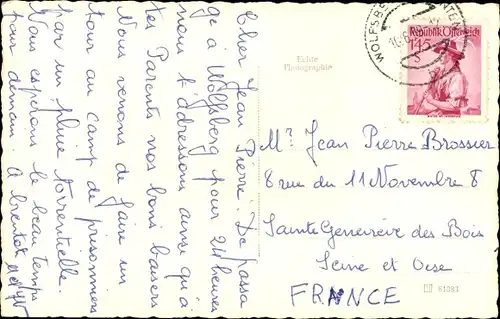 Cher Jean Pierre. De passa
ge à Wolfsberg pour 24 heures
nous t'adressons ainsi qu'à
tes Parents nos bons baisers
Nous venons de faire un
tour au camp de prisonniers
par un pluie torrentielle.
Nous espérons le beau temps
pour demain. A bientôt
Echte
Photographie
WOLFSB
Republik Österreich
1.45
Mr Jean Pierre Brossier
8 rue du 11 Novembre 8
Sainte Geneviève des Bois
Seine et Oise
FRANCE
61081